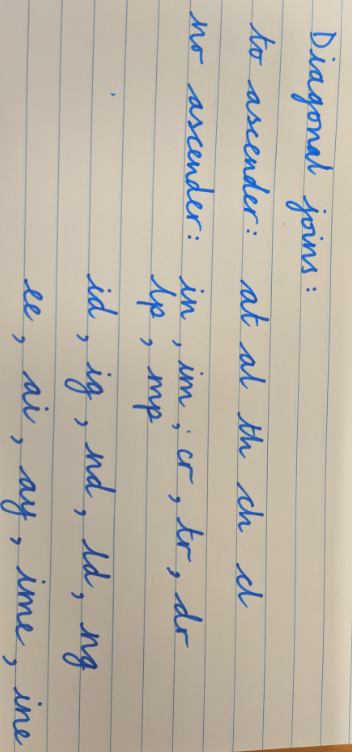 Diagonal joins:
to ascender: at al th ch cl
no ascender: in, im, cr, tr, dr
lp, mp
id, ig, nd, ld, ng
ee, ai, ay, ime, ine